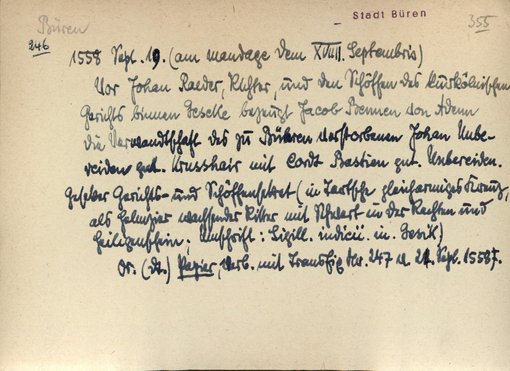 Büren
Stadt Büren
355
246
1558 Sept. 19. (am mandage dem XVIIII. Septembris)
Vor Johan Raeder, Richter, und den Schöffen des kurkölnischen
Gerichts binnen Geseke bezeugt Jacob Bennen von Adenn
die Verwandtschaft des zu Büren verstorbenen Johan Unbe-
reiden gnt. Krusshair mit Cordt Bastien gnt. Unbereiden.
Geseker Gerichts- und Schöffensekret (in Tartsche gleicharmiges Kreuz,
als Helmzier wachsender Ritter mit Schwert in der Rechten und
Heiligenschein; Umschrift: Sigill. indicii. in. Gesik)
Or. (dt.) Papier, verb. mit Transfix Nr. 247 v. 21. Sept. 1558.